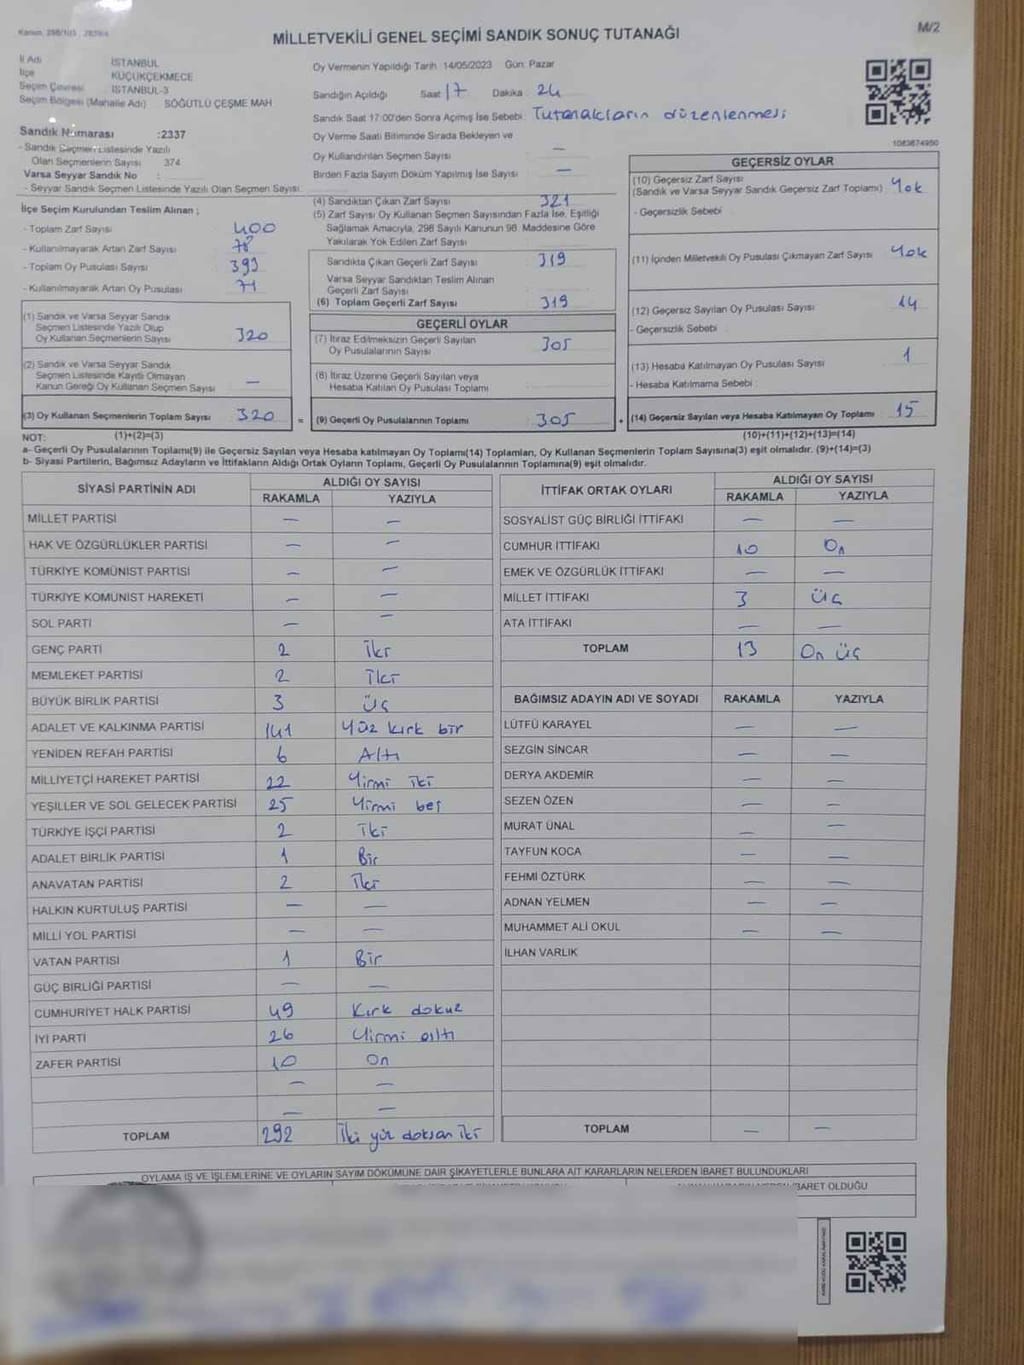 MİLLETVEKİLİ GENEL SEÇİMİ SANDIK SONUÇ TUTANAĞI
M/2
İl Adı İSTANBUL
İlçe KÜÇÜKÇEKMECE
Seçim Çevresi İSTANBUL-3
Seçim Bölgesi (Mahalle Adı) SÖĞÜTLÜ ÇEŞME MAH
Sandık Numarası :2337
- Sandık Seçmen Listesinde Yazılı
Olan Seçmenlerin Sayısı 374
Varsa Seyyar Sandık No :
- Seyyar Sandık Seçmen Listesinde Yazılı Olan Seçmen Sayısı
Oy Vermenin Yapıldığı Tarih 14/05/2023 Gün: Pazar
Sandığın Açıldığı Saat 17 Dakika 24
Sandık Saat 17:00'den Sonra Açılmış İse Sebebi Tutanakların düzenlenmesi
Oy Verme Saati Bitiminde Sırada Bekleyen ve
Oy Kullandırılan Seçmen Sayısı —
Birden Fazla Sayım Döküm Yapılmış İse Sayısı —
1083874950
İlçe Seçim Kurulundan Teslim Alınan ;
- Toplam Zarf Sayısı 400
- Kullanılmayarak Artan Zarf Sayısı 78
- Toplam Oy Pusulası Sayısı 393
- Kullanılmayarak Artan Oy Pusulası 71
(1) Sandık ve Varsa Seyyar Sandık
Seçmen Listesinde Yazılı Olup
Oy Kullanan Seçmenlerin Sayısı 320
(2) Sandık ve Varsa Seyyar Sandık
Seçmen Listesinde Kayıtlı Olmayan
Kanun Gereği Oy Kullanan Seçmen Sayısı —
(3) Oy Kullanan Seçmenlerin Toplam Sayısı 320
(4) Sandıktan Çıkan Zarf Sayısı 321
(5) Zarf Sayısı Oy Kullanan Seçmen Sayısından Fazla İse, Eşitliği
Sağlamak Amacıyla, 298 Sayılı Kanunun 98. Maddesine Göre
Yakılarak Yok Edilen Zarf Sayısı
Sandıkta Çıkan Geçerli Zarf Sayısı 319
Varsa Seyyar Sandıktan Teslim Alınan
Geçerli Zarf Sayısı
(6) Toplam Geçerli Zarf Sayısı 319
GEÇERLİ OYLAR
(7) İtiraz Edilmeksizin Geçerli Sayılan
Oy Pusulalarının Sayısı 305
(8) İtiraz Üzerine Geçerli Sayılan veya
Hesaba Katılan Oy Pusulası Toplamı
= (9) Geçerli Oy Pusulalarının Toplamı 305
GEÇERSİZ OYLAR
(10) Geçersiz Zarf Sayısı
(Sandık ve Varsa Seyyar Sandık Geçersiz Zarf Toplamı) Yok
- Geçersizlik Sebebi
(11) İçinden Milletvekili Oy Pusulası Çıkmayan Zarf Sayısı Yok
(12) Geçersiz Sayılan Oy Pusulası Sayısı 14
- Geçersizlik Sebebi
(13) Hesaba Katılmayan Oy Pusulası Sayısı 1
- Hesaba Katılmama Sebebi
+ (14) Geçersiz Sayılan veya Hesaba Katılmayan Oy Toplamı 15
NOT: (1)+(2)=(3) (10)+(11)+(12)+(13)=(14)
a- Geçerli Oy Pusulalarının Toplamı(9) ile Geçersiz Sayılan veya Hesaba Katılmayan Oy Toplamı(14) Toplamları, Oy Kullanan Seçmenlerin Toplam Sayısına(3) eşit olmalıdır. (9)+(14)=(3)
b- Siyasi Partilerin, Bağımsız Adayların ve İttifakların Aldığı Ortak Oyların Toplamı, Geçerli Oy Pusulalarının Toplamına(9) eşit olmalıdır.
SİYASİ PARTİNİN ADI ALDIĞI OY SAYISI
RAKAMLA YAZIYLA
MİLLET PARTİSİ — —
HAK VE ÖZGÜRLÜKLER PARTİSİ — —
TÜRKİYE KOMÜNİST PARTİSİ — —
TÜRKİYE KOMÜNİST HAREKETİ — —
SOL PARTİ — —
GENÇ PARTİ 2 İki
MEMLEKET PARTİSİ 2 İki
BÜYÜK BİRLİK PARTİSİ 3 Üç
ADALET VE KALKINMA PARTİSİ 141 Yüz kırk bir
YENİDEN REFAH PARTİSİ 6 Altı
MİLLİYETÇİ HAREKET PARTİSİ 22 Yirmi iki
YEŞİLLER VE SOL GELECEK PARTİSİ 25 Yirmi beş
TÜRKİYE İŞÇİ PARTİSİ 2 İki
ADALET BİRLİK PARTİSİ 1 Bir
ANAVATAN PARTİSİ 2 İki
HALKIN KURTULUŞ PARTİSİ — —
MİLLİ YOL PARTİSİ — —
VATAN PARTİSİ 1 Bir
GÜÇ BİRLİĞİ PARTİSİ — —
CUMHURİYET HALK PARTİSİ 49 Kırk dokuz
İYİ PARTİ 26 Yirmi altı
ZAFER PARTİSİ 10 On
— —
— —
TOPLAM 292 İki yüz doksan iki
İTTİFAK ORTAK OYLARI ALDIĞI OY SAYISI
RAKAMLA YAZIYLA
SOSYALİST GÜÇ BİRLİĞİ İTTİFAKI — —
CUMHUR İTTİFAKI 10 On
EMEK VE ÖZGÜRLÜK İTTİFAKI — —
MİLLET İTTİFAKI 3 Üç
ATA İTTİFAKI — —
TOPLAM 13 On üç
BAĞIMSIZ ADAYIN ADI VE SOYADI RAKAMLA YAZIYLA
LÜTFÜ KARAYEL — —
SEZGİN SİNCAR — —
DERYA AKDEMİR — —
SEZEN ÖZEN — —
MURAT ÜNAL — —
TAYFUN KOCA — —
FEHMİ ÖZTÜRK — —
ADNAN YELMEN — —
MUHAMMET ALİ OKUL — —
İLHAN VARLIK
TOPLAM — —
OYLAMA İŞ VE İŞLEMLERİNE VE OYLARIN SAYIM DÖKÜMÜNE DAİR ŞİKAYETLERLE BUNLARA AİT KARARLARIN NELERDEN İBARET BULUNDUKLARI
İBARET OLDUĞU